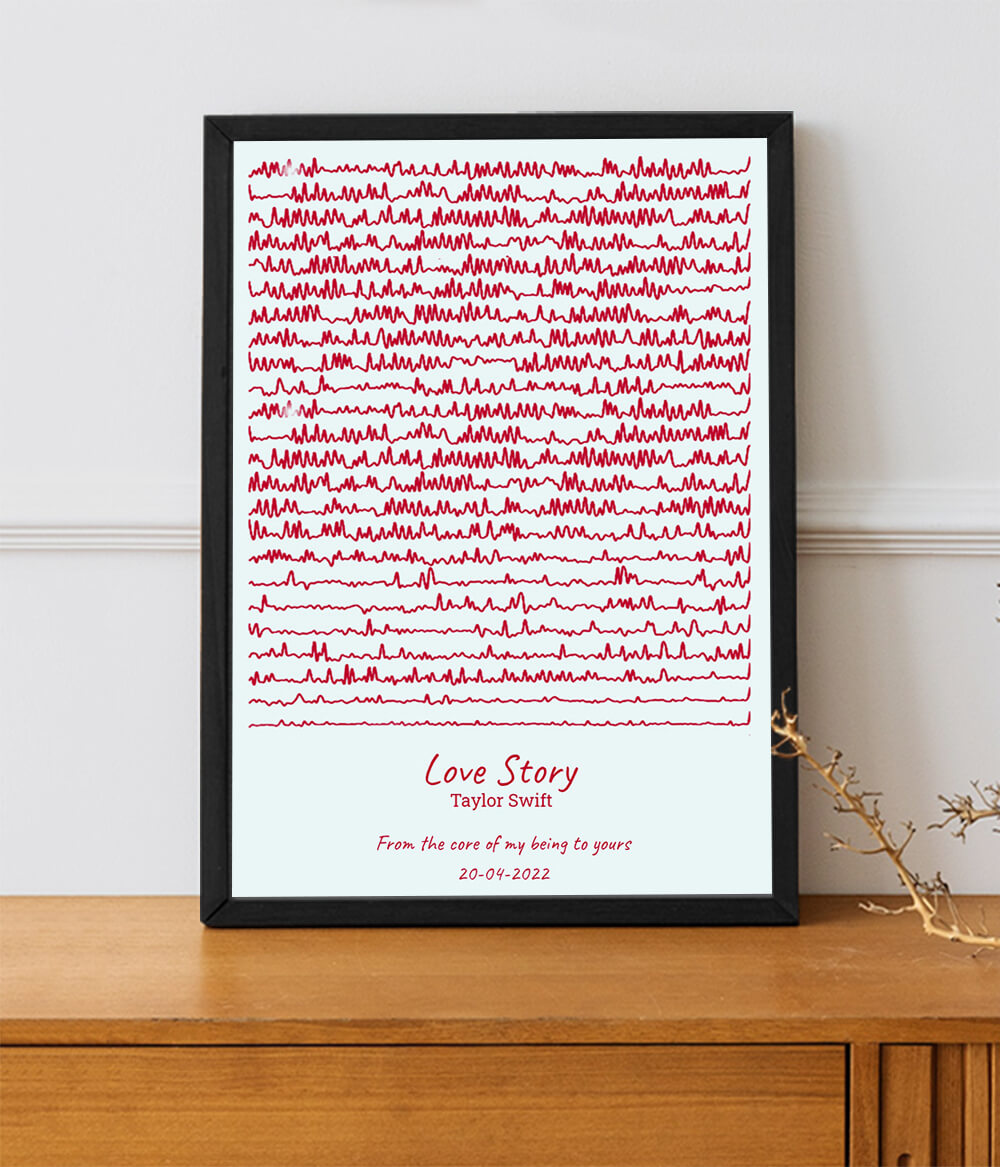 Love Story
Taylor Swift
From the core of my being to yours
20-04-2022